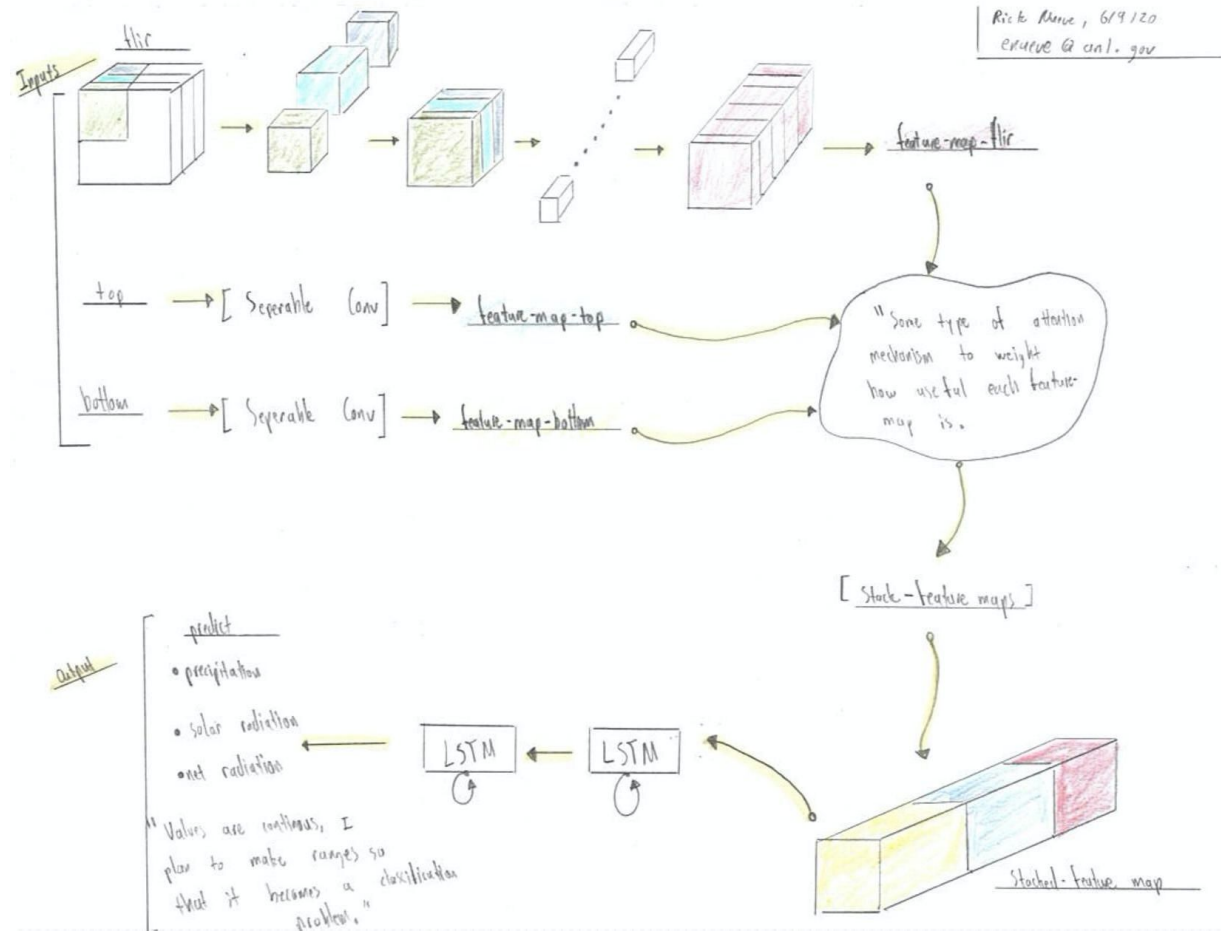 Rick 6/9/20
@ anl.gov
Inputs
flir
feature-map-flir
top
[ Seperable Conv ]
feature-map-top
bottom
[ Seperable Conv ]
feature-map-bottom
"Some type of attention
mechanism to weight
how useful each feature-
map is.
[ Stack-feature maps ]
Stacked-feature map
LSTM
LSTM
Output
predict
• precipitation
• solar radiation
• net radiation
"Values are continous, I
plan to make ranges so
that it becomes a classification
problem."